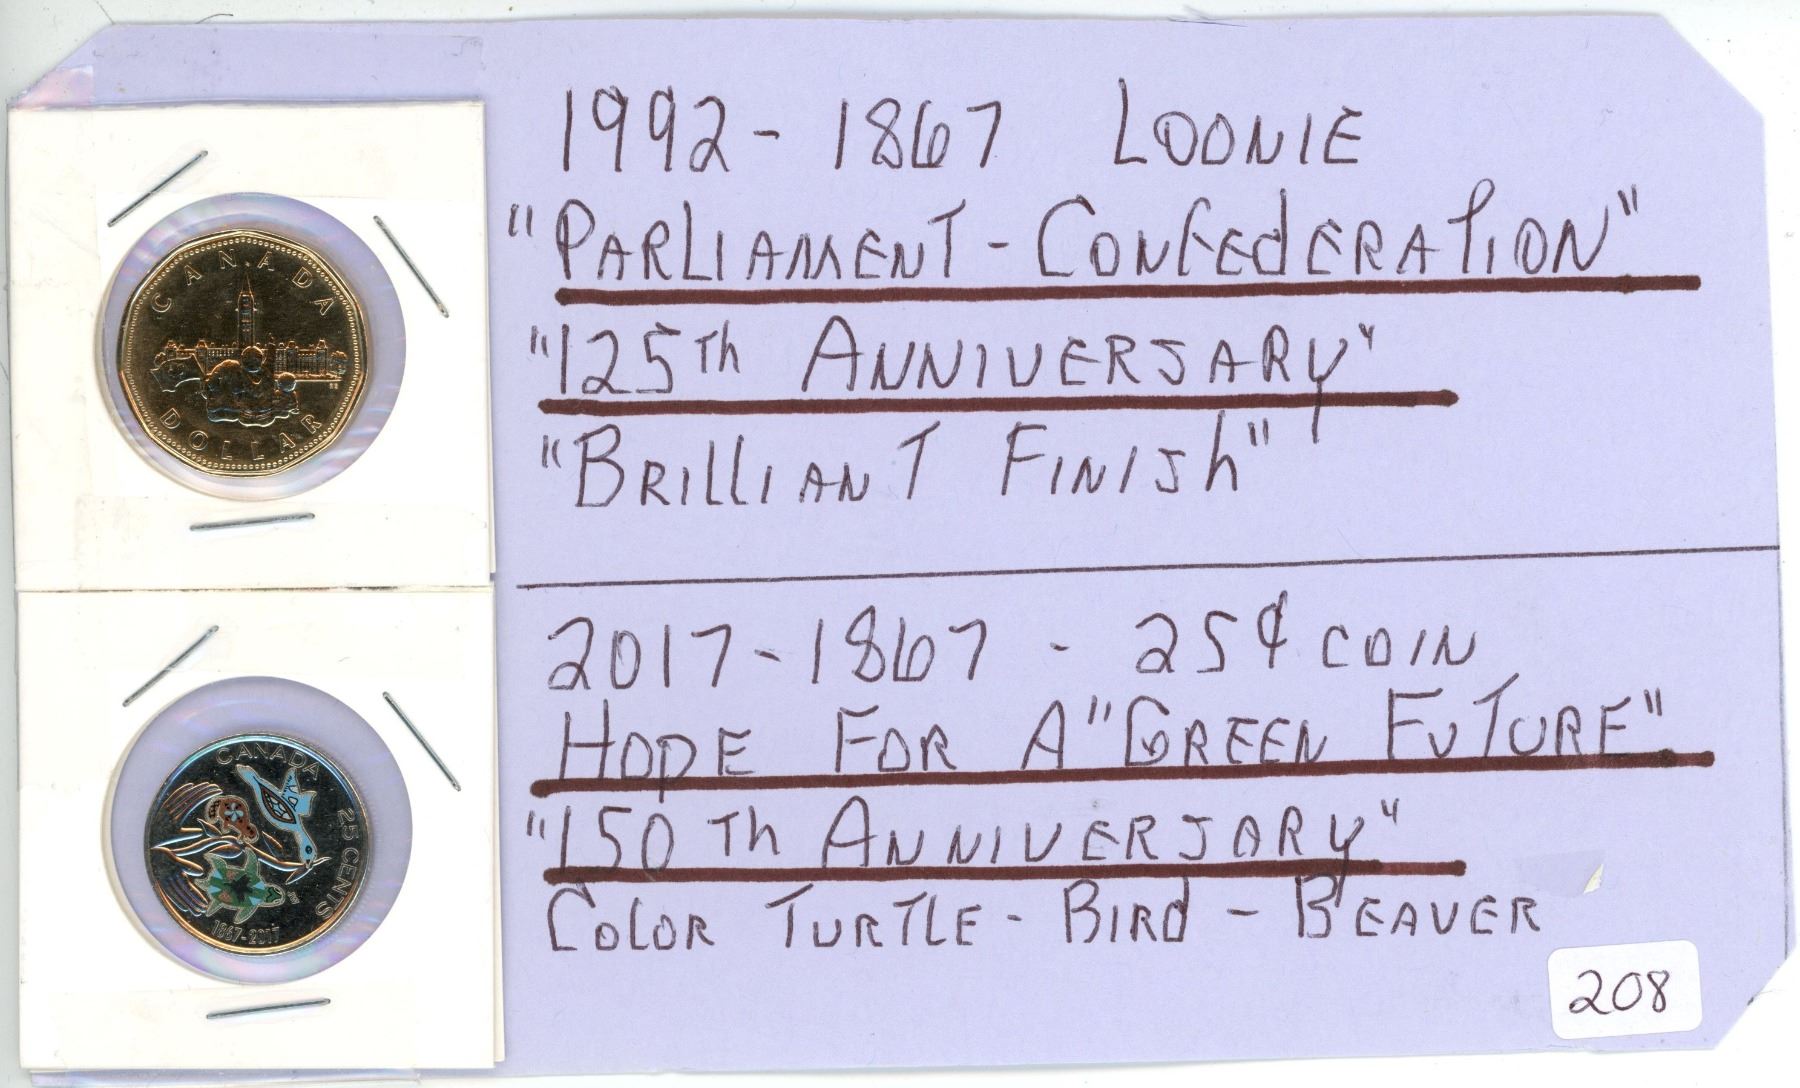 1992 - 1867 LOONIE
"PARLIAMENT - CONFEDERATION"
"125Th ANNIVERSARY"
"BRILLIANT FINISH"
CANADA
DOLLAR
2017 - 1867 - 25¢ COIN
HOPE FOR A "GREEN FUTURE"
"150Th ANNIVERSARY"
COLOR TURTLE - BIRD - BEAVER
CANADA
25 CENTS
1867-2017
208